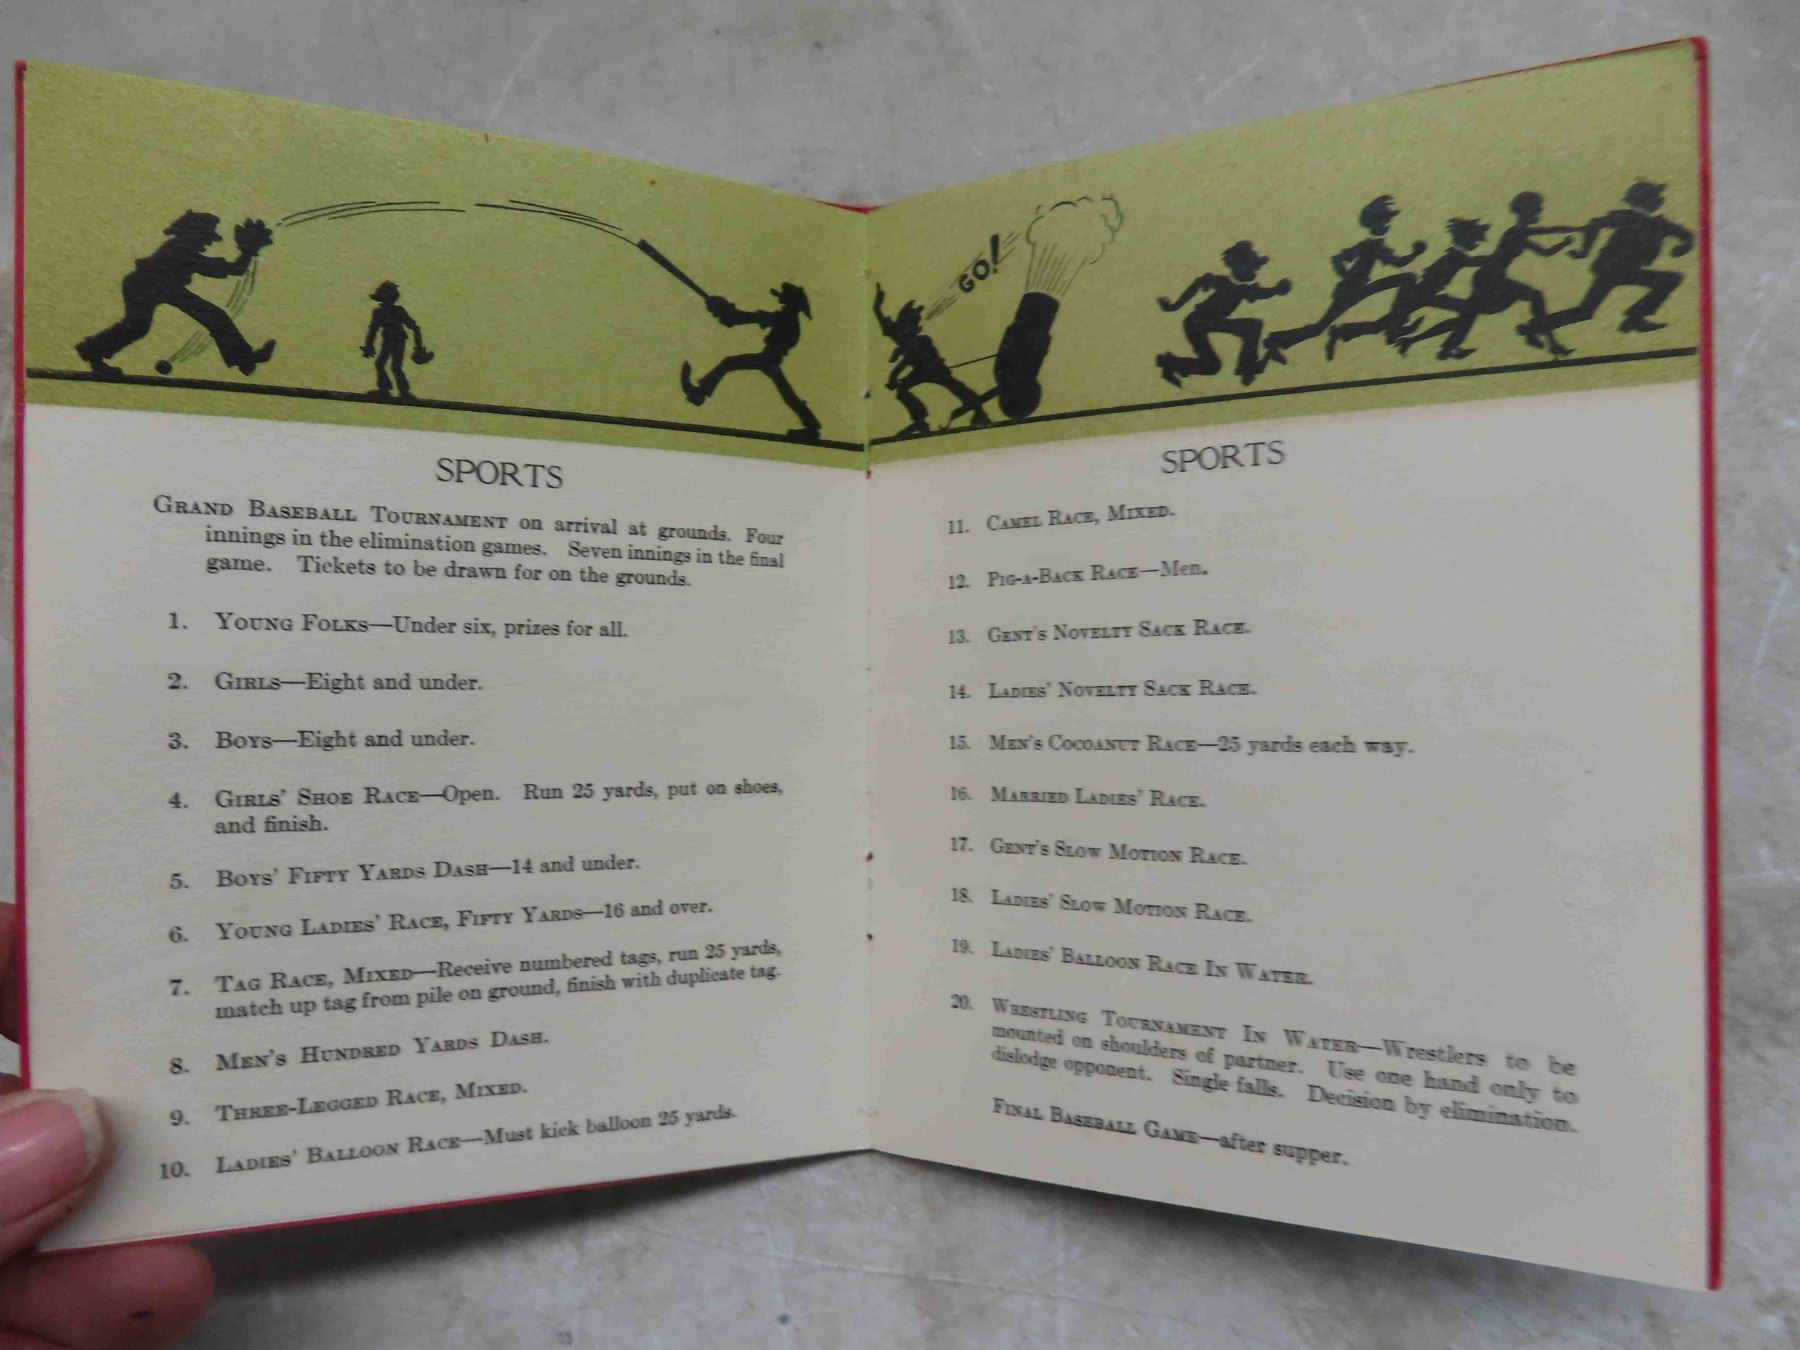 SPORTS
GRAND BASEBALL TOURNAMENT on arrival at grounds. Four
innings in the elimination games. Seven innings in the final
game. Tickets to be drawn for on the grounds.
1. YOUNG FOLKS—Under six, prizes for all.
2. GIRLS—Eight and under.
3. BOYS—Eight and under.
4. GIRLS' SHOE RACE—Open. Run 25 yards, put on shoes,
and finish.
5. BOYS' FIFTY YARDS DASH—14 and under.
6. YOUNG LADIES' RACE, FIFTY YARDS—16 and over.
7. TAG RACE, MIXED—Receive numbered tags, run 25 yards,
match up tag from pile on ground, finish with duplicate tag.
8. MEN'S HUNDRED YARDS DASH.
9. THREE-LEGGED RACE, MIXED.
10. LADIES' BALLOON RACE—Must kick balloon 25 yards.
GO!
SPORTS
11. CAMEL RACE, MIXED.
12. PIG-A-BACK RACE—Men.
13. GENT'S NOVELTY SACK RACE.
14. LADIES' NOVELTY SACK RACE.
15. MEN'S COCOANUT RACE—25 yards each way.
16. MARRIED LADIES' RACE.
17. GENT'S SLOW MOTION RACE.
18. LADIES' SLOW MOTION RACE.
19. LADIES' BALLOON RACE IN WATER.
20. WRESTLING TOURNAMENT IN WATER—Wrestlers to be
mounted on shoulders of partner. Use one hand only to
dislodge opponent. Single falls. Decision by elimination.
FINAL BASEBALL GAME—after supper.